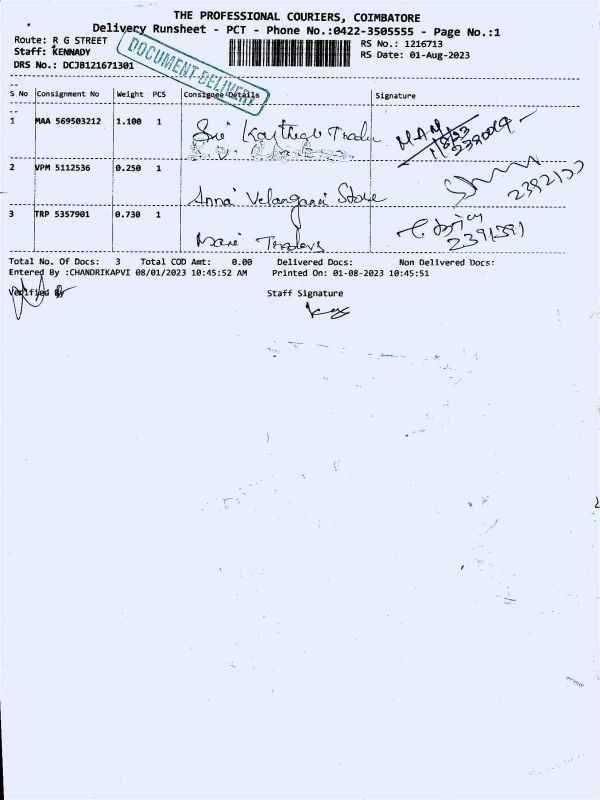 THE PROFESSIONAL COURIERS, COIMBATORE
Delivery Runsheet - PCT - Phone No.:0422-3505555 - Page No.:1
Route: R G STREET
RS No.: 1216713
Staff: KENNADY
RS Date: 01-Aug-2023
DRS No.: DCJB121671301
DOCUMENT DELIVERY
S No Consignment No Weight PCS Consignee Details Signature
1 MAA 569503212 1.100 1 Sri Karthigu
1/8/23
2 VPM 5112536 0.250 1
Anna Velangani Store
3 TRP 5357901 0.730 1
Mani Traders
Total No. Of Docs: 3 Total COD Amt: 0.00 Delivered Docs: Non Delivered Docs:
Entered By :CHANDRIKAPVI 08/01/2023 10:45:52 AM Printed On: 01-08-2023 10:45:51
Verified By
Staff Signature